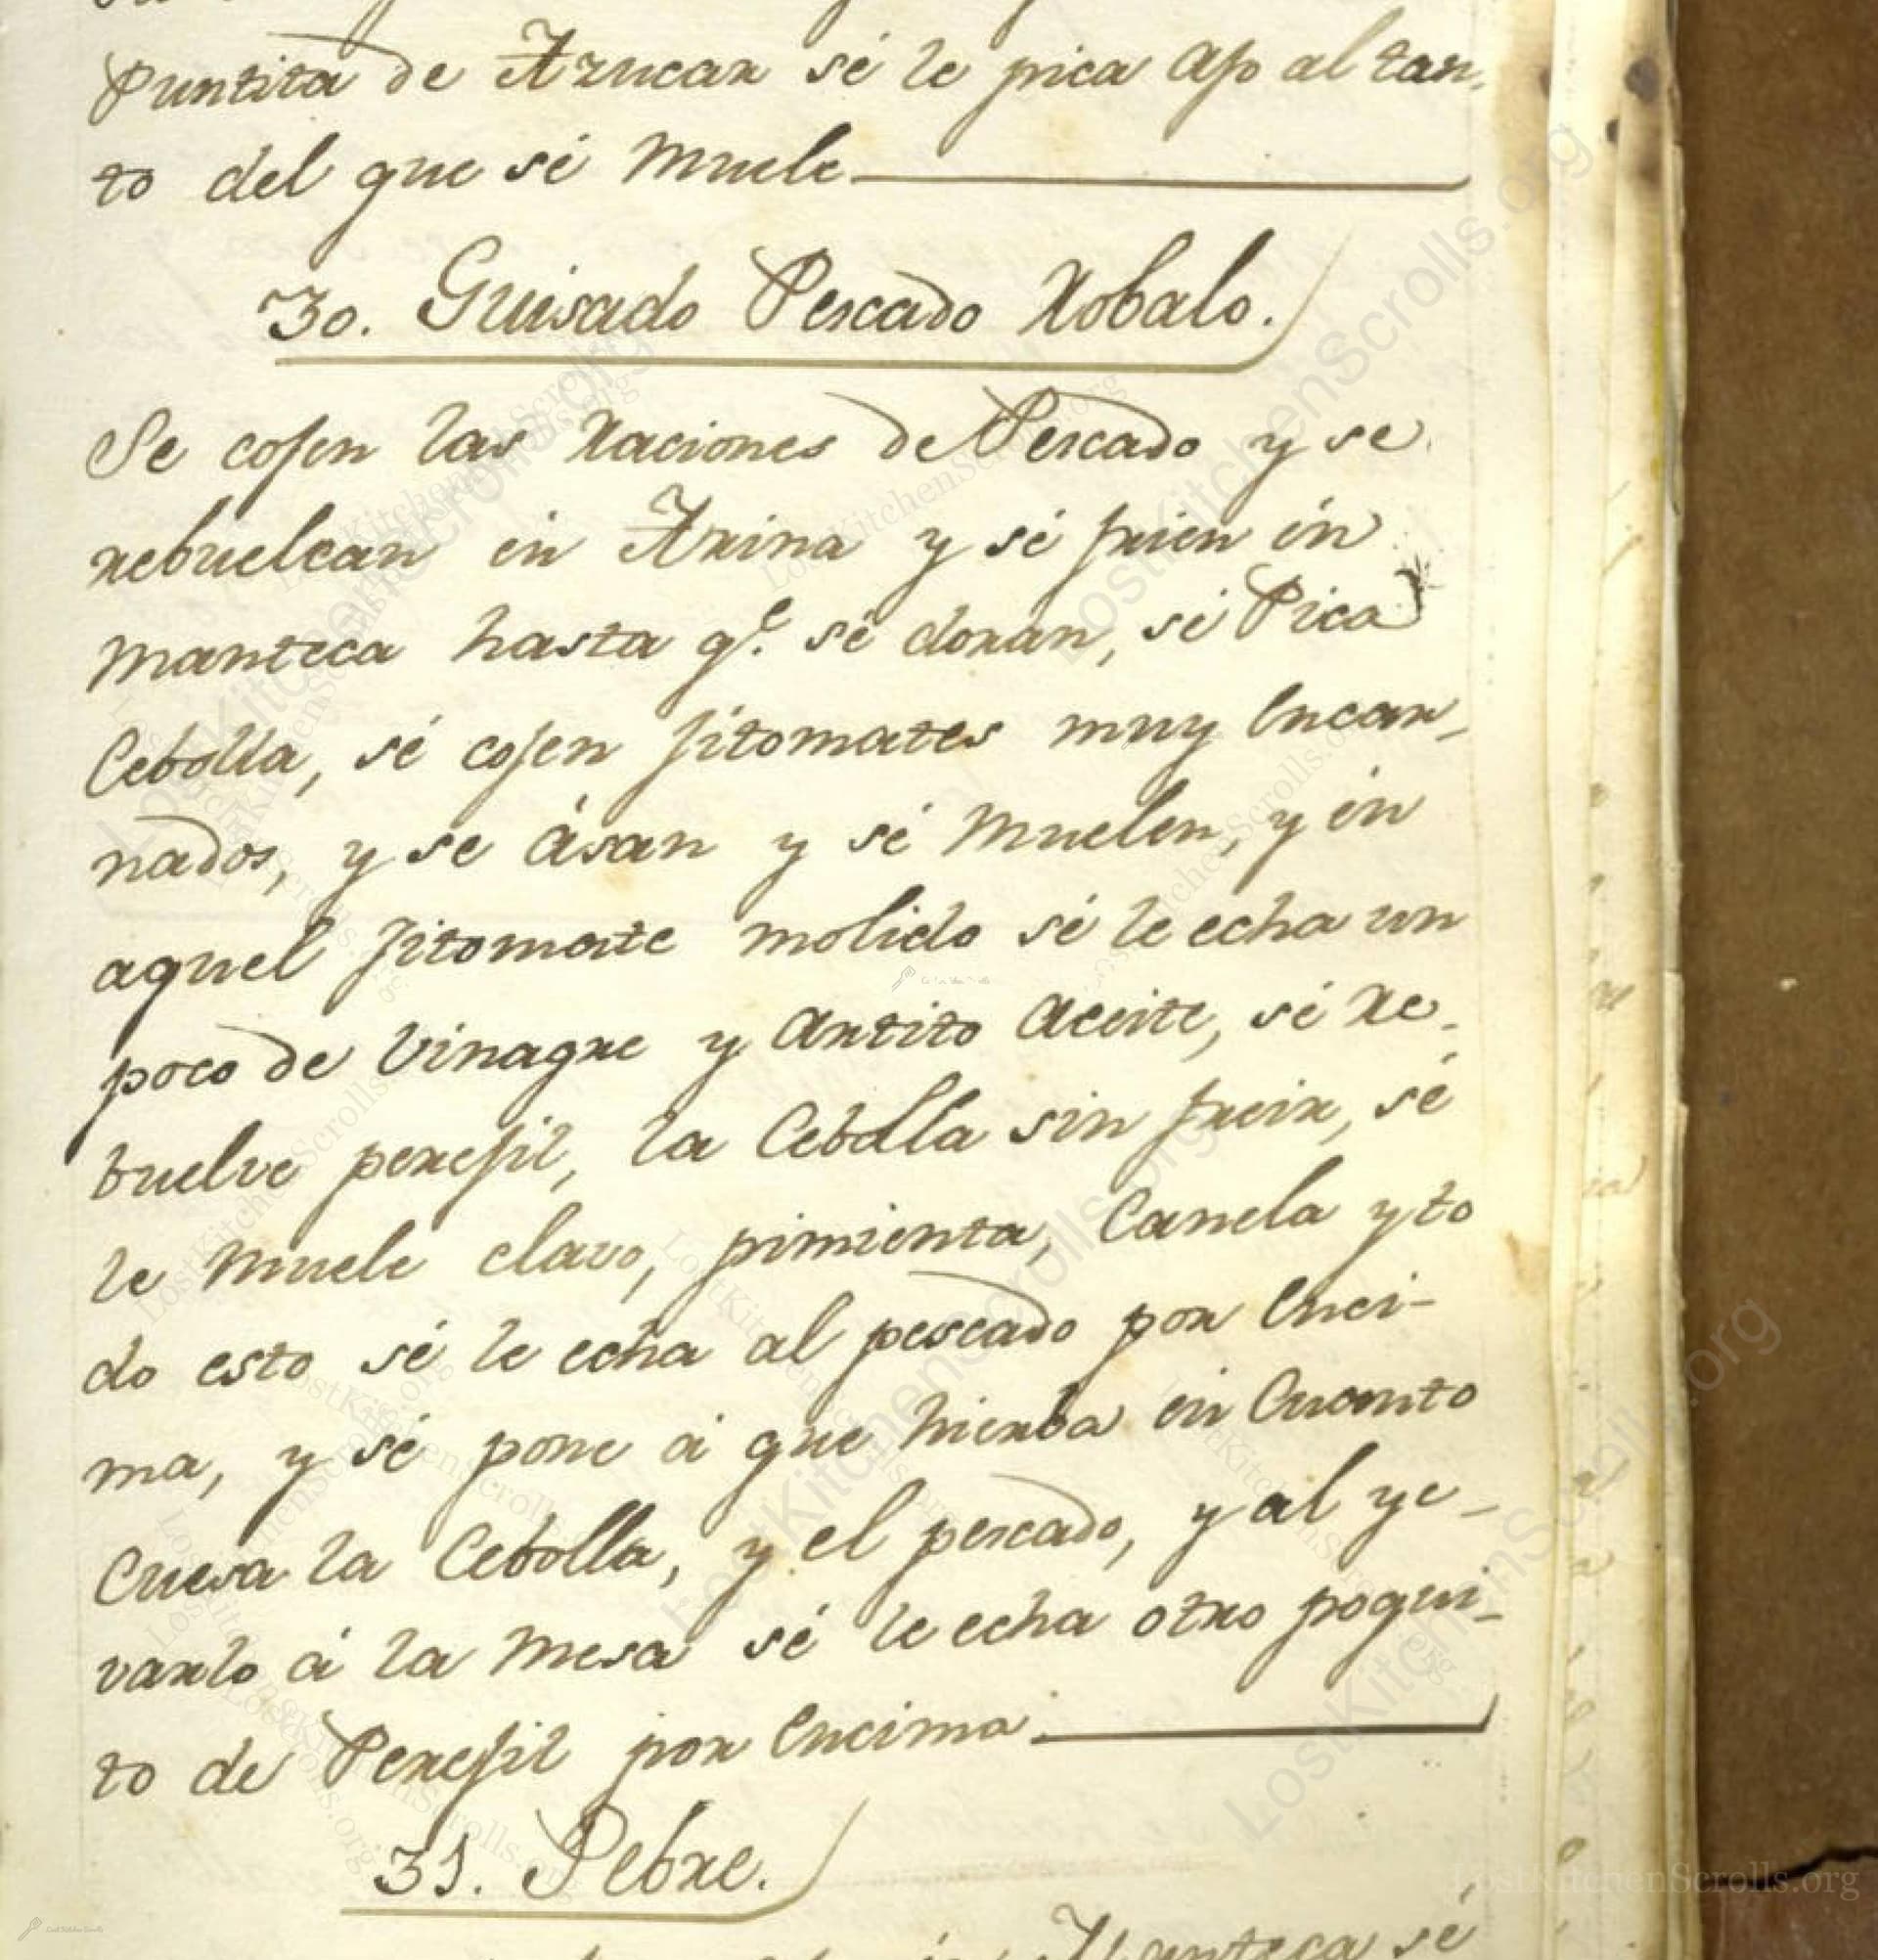 Puntita de Azucar sé le pica Ajo al tan-
to del que sé Muele
30. Guisado Pescado Robalo.
Se cojen las Raciones de Pescado y se
rebuelcan en Arina y sé frien én
Manteca hasta qe. sé doran, sé Pica
Cebolla, sé cojen jitomates muy Encar-
nados, y se ásan y sé Muelen, y én
aquel jitomate molido sé le echa un
poco de Vinagre y Antito Aceite, sé Re-
buelve perejil, la Cebolla sin freir, sé
le Muele clavo, pimienta, Canela y to
do esto sé le echa al pescado por Enci-
ma, y sé pone á que hierba én Cuanto
Cuesa la Cebolla, y el pescado, y al ye-
varlo á la Mesa sé le echa otro poqui-
to de Perejil por Encima.
31. Pebre.
Manteca sé
LostKitchenScrolls.org